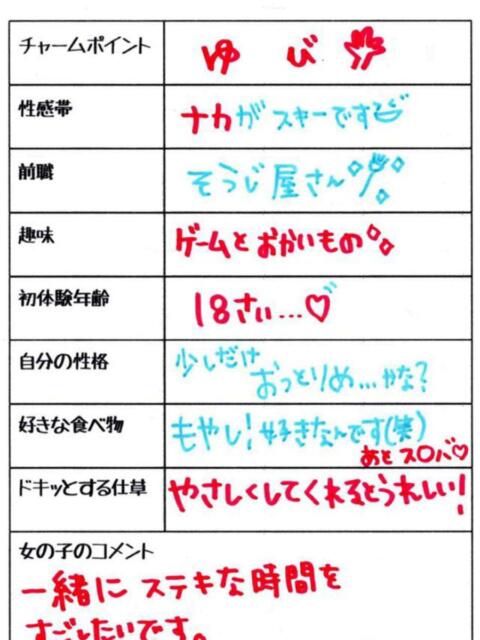 チャームポイント ゆび
性感帯 ナカがスキーです
前職 そうじ屋さん
趣味 ゲームとおかいもの
初体験年齢 18さい...♡
自分の性格 少しだけ
おっとりめ...かな?
好きな食べ物 もやし!好きなんです(笑)
あとス〇バ♡
ドキッとする仕草 やさしくしてくれるとうれしい!
女の子のコメント
一緒にステキな時間を
すごしたいです。